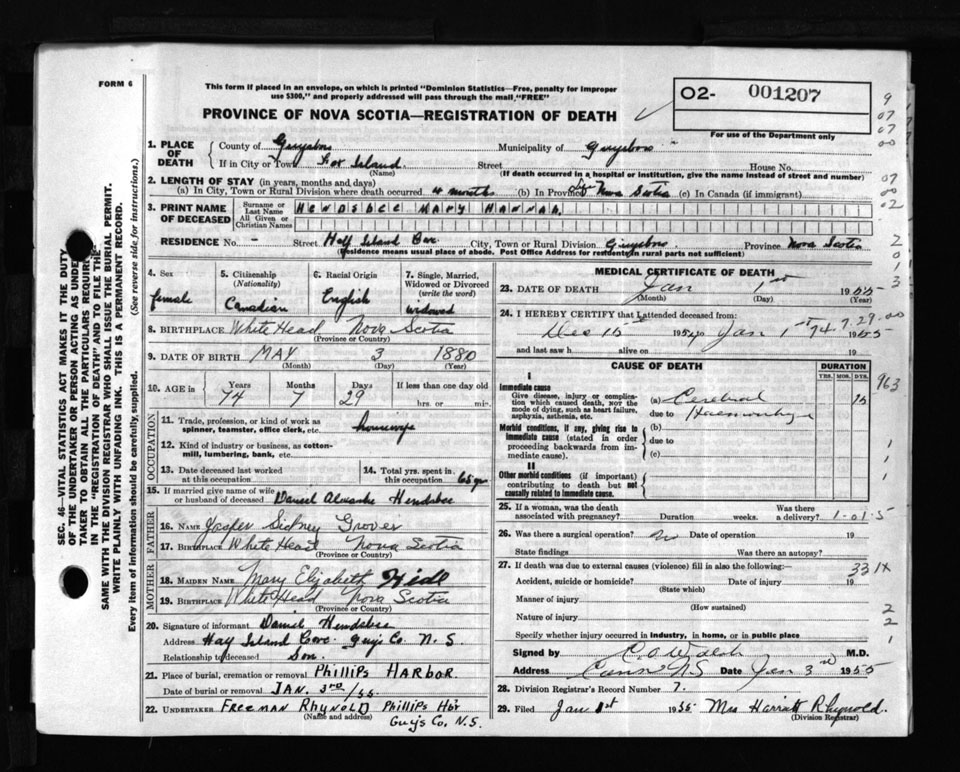 FORM 6
This form if placed in an envelope, on which is printed "Dominion Statistics—Free, penalty for improper
use $300," and properly addressed will pass through the mail "FREE"
PROVINCE OF NOVA SCOTIA—REGISTRATION OF DEATH
O2- 001207
For use of the Department only
9
07
07
00
07
00
02
2
0
1
3
SEC. 46—VITAL STATISTICS ACT MAKES IT THE DUTY
OF THE UNDERTAKER OR PERSON ACTING AS UNDER
TAKER TO OBTAIN ALL THE PARTICULARS REQUIRED
IN THE "REGISTRATION OF DEATH" AND TO FILE THE
SAME WITH THE DIVISION REGISTRAR WHO SHALL ISSUE THE BURIAL PERMIT.
WRITE PLAINLY WITH UNFADING INK. THIS IS A PERMANENT RECORD.
Every item of information should be carefully supplied. (See reverse side for instructions.)
1. PLACE OF DEATH
County of Guysboro Municipality of Guysboro
If in City or Town Fox Island Street House No.
(Name) (If death occurred in a hospital or institution, give the name instead of street and number)
2. LENGTH OF STAY (in years, months and days)
(a) In City, Town or Rural Division where death occurred 4 months (b) In Province Nova Scotia (c) In Canada (if immigrant)
3. PRINT NAME OF DECEASED
Surname or Last Name
All Given or Christian Names
HENDSBEE MARY HANNAH
RESIDENCE No. - Street Half Island Cove City, Town or Rural Division Guysboro Province Nova Scotia
(Residence means usual place of abode. Post Office Address for residents in rural parts not sufficient)
4. Sex female
5. Citizenship (Nationality) Canadian
6. Racial Origin English
7. Single, Married, Widowed or Divorced (write the word) widowed
8. BIRTHPLACE White Head Nova Scotia
(Province or Country)
9. DATE OF BIRTH MAY 3 1880
(Month) (Day) (Year)
10. AGE in Years Months Days If less than one day old
74 7 29 hrs. or min.
OCCUPATION
11. Trade, profession, or kind of work as
spinner, teamster, office clerk, etc. housewife
12. Kind of industry or business, as cotton-
mill, lumbering, bank, etc.
13. Date deceased last worked
at this occupation
14. Total yrs. spent in
this occupation 65 yrs
15. If married give name of wife
or husband of deceased Daniel Hendsbee
FATHER
16. NAME Jasper Sidney Grover
17. BIRTHPLACE White Head Nova Scotia
(Province or Country)
MOTHER
18. MAIDEN NAME Mary Elizabeth
19. BIRTHPLACE White Head Nova Scotia
(Province or Country)
20. Signature of informant Daniel Hendsbee
Address Half Island Cove Guy's Co. N. S.
Relationship to deceased Son.
21. Place of burial, cremation or removal PHILLIPS HARBOR.
Date of burial or removal JAN. 3rd/55.
22. UNDERTAKER FREEMAN RHYNOLD PHILLIPS Hbr
(Name and address) Guy's Co. N.S.
MEDICAL CERTIFICATE OF DEATH
23. DATE OF DEATH Jan 1st 1955
(Month) (Day) (Year)
24. I HEREBY CERTIFY that I attended deceased from:
Dec 15 1954 Jan 1st 1955
74.7.29.00
and last saw h alive on 19
CAUSE OF DEATH
DURATION
YRS. MOS. DYS.
963
I
Immediate cause
Give disease, injury or complica-
tion which caused death, NOT the
mode of dying, such as heart failure,
asphyxia, asthenia, etc.
(a) Cerebral 15
due to Haemorrhage
Morbid conditions, if any, giving rise to
immediate cause (stated in order
proceeding backwards from im-
mediate cause).
(b)
due to
(c)
1
1
1
II
Other morbid conditions (if important)
contributing to death but not
causally related to immediate cause.
25. If a woman, was the death
associated with pregnancy? Duration weeks. Was there
a delivery? 1-01-5
26. Was there a surgical operation? no Date of operation 19
State findings Was there an autopsy?
27. If death was due to external causes (violence) fill in also the following:—
331X
Accident, suicide or homicide? Date of injury 19
(State which)
Manner of injury
(How sustained)
Nature of injury
Specify whether injury occurred in industry, in home, or in public place
2
2
1
Signed by M.D.
Address Canso N.S Date Jan 3rd 1955
28. Division Registrar's Record Number 7.
29. Filed Jan 1st 1955 Mrs Harriett Rhynold.
(Division Registrar)